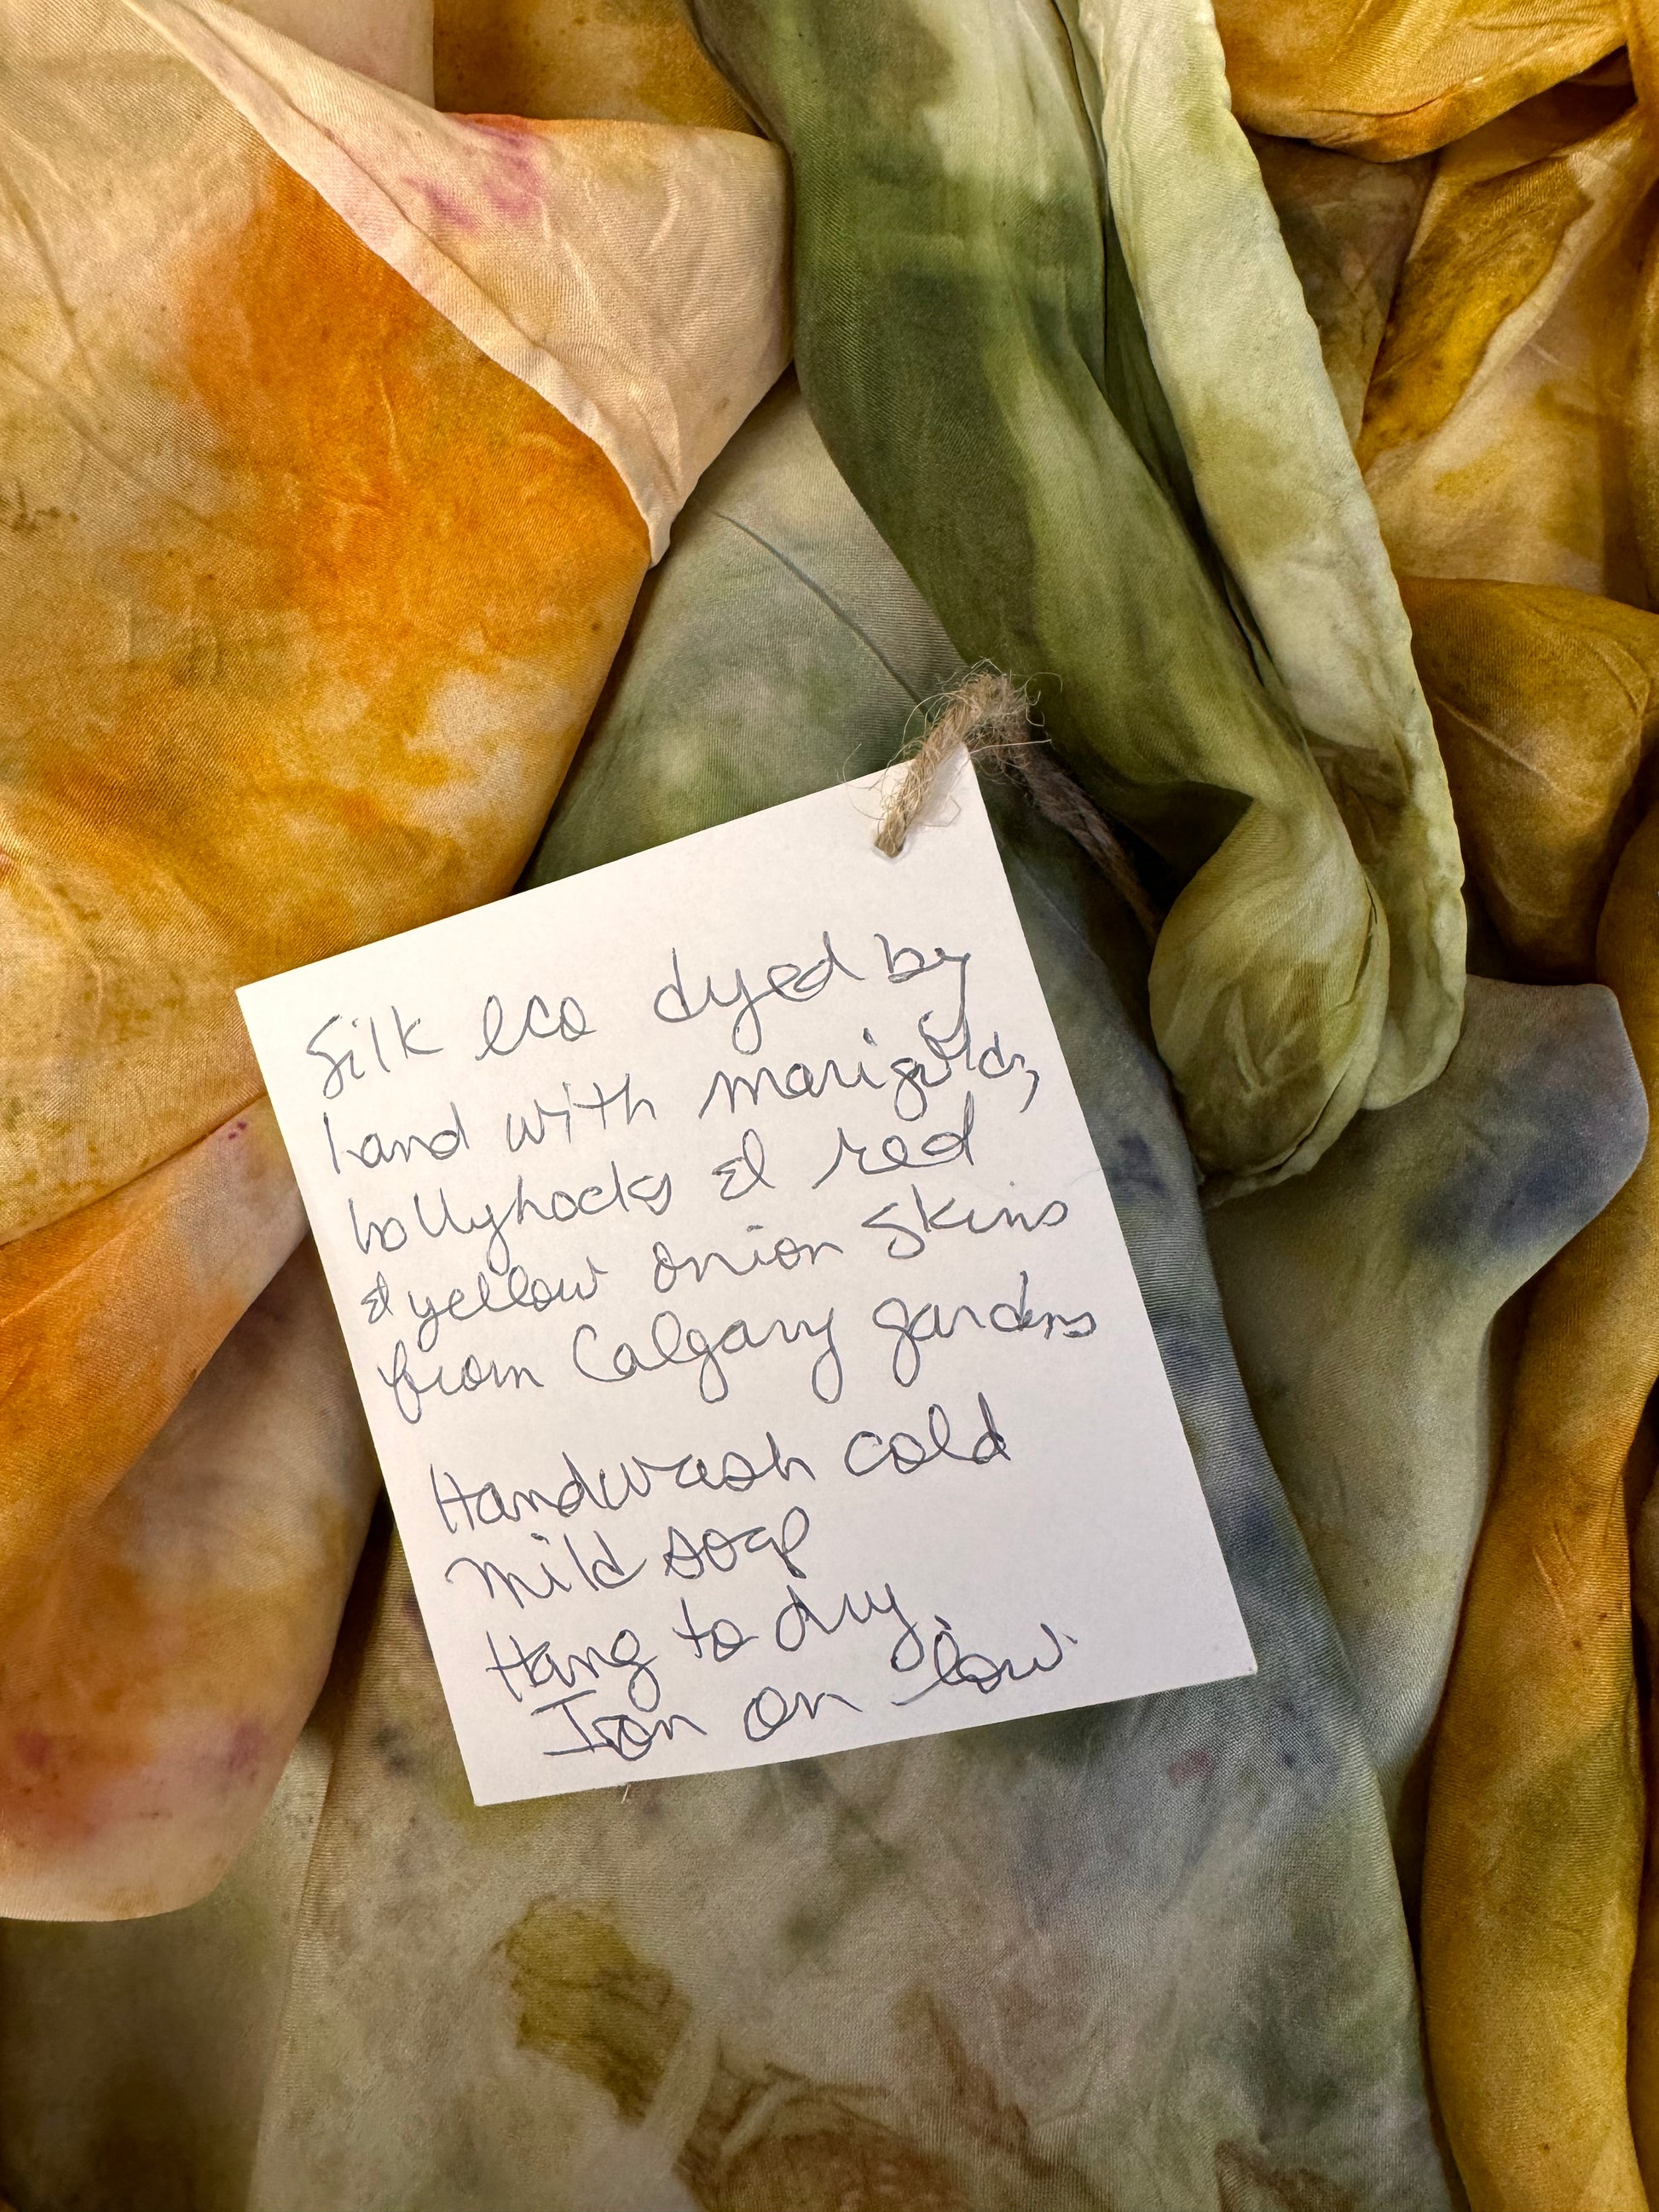 Silk eco dyed by
hand with marigolds,
hollyhocks & red
& yellow onion skins
from Calgary gardens
Handwash cold
Mild soap
Hang to dry
Iron on low